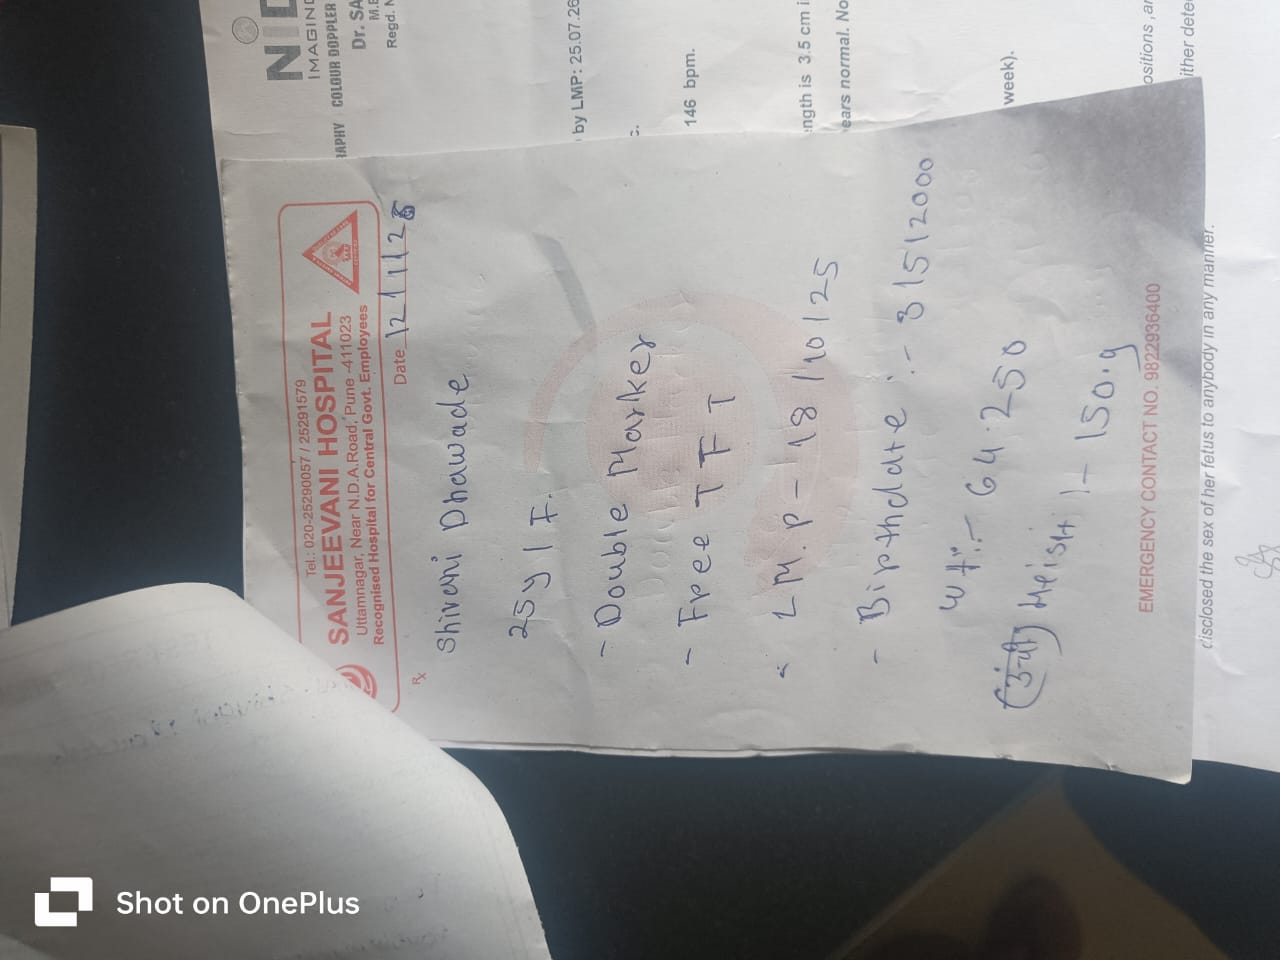 Tel.: 020-25290057 / 25291579
SANJEEVANI HOSPITAL
Uttamnagar, Near N.D.A.Road, Pune -411023
Recognised Hospital for Central Govt. Employees
Date 12/1/26
Rx
Shivani Dhawade
25y / F.
- Double Marker
- Free T T F T
- L M.P - 18/10/25
- Birthdate :- 3/5/2000
Wt:- 64.250
Height :- 150.9
EMERGENCY CONTACT NO. 9822936400
IMAGING
COLOUR DOPPLER
Dr. SA
Regd. N
by LMP: 25.07.26
146 bpm.
ngth is 3.5 cm i
ears normal. No
week).
ositions ,an
ither detec
disclosed the sex of her fetus to anybody in any manner.
Shot on OnePlus